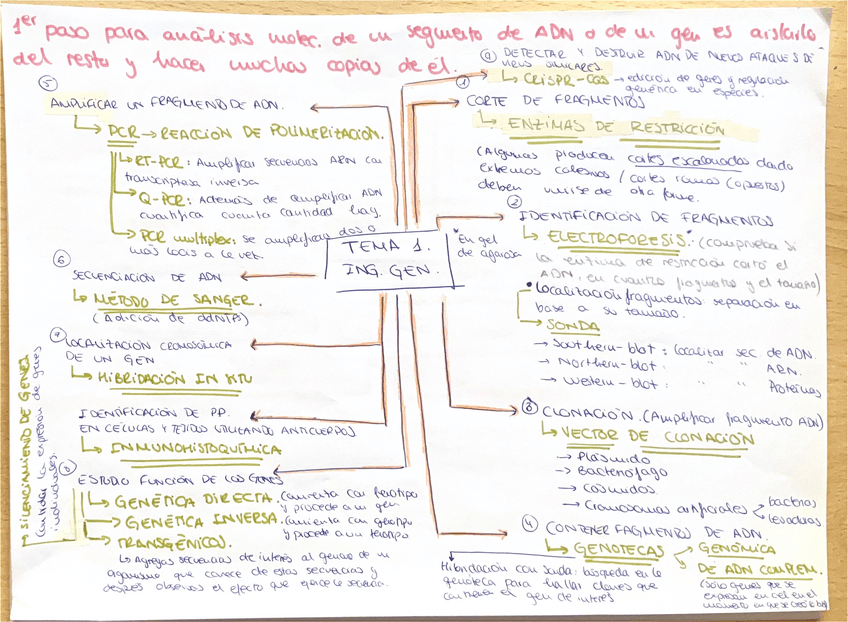 1er paso para análisis molec. de un segmento de ADN o de un gen es aislarlo
del resto y hacer muchas copias de él.
⑤
AMPLIFICAR UN FRAGMENTO DE ADN.
↳ PCR → REACCIÓN DE POLIMERIZACIÓN.
↳ RT-PCR: Amplificar secuencias ARN con
transcriptasa inversa
↳ Q-PCR: Además de amplificar ADN
cuantifica cuanta cantidad hay.
↳ PCR multiplex: se amplifican dos o
más locis a la vez.
⑥
SECUENCIACIÓN DE ADN
↳ MÉTODO DE SANGER.
(Adición de ddNTPs)
LOCALIZACIÓN CROMOSÓMICA
DE UN GEN
↳ HIBRIDACIÓN IN SITU
IDENTIFICACIÓN DE PP.
EN CÉLULAS Y TEJIDOS UTILIZANDO ANTICUERPOS
↳ INMUNOHISTOQUÍMICA
ESTUDIO FUNCIÓN DE LOS GENES
↳ GENÉTICA DIRECTA. Comienza con fenotipo
y procede a un gen
→ GENÉTICA INVERSA. Comienza con genotipo
y procede a un fenotipo
→ TRANSGÉNICOS.
↳ Agregas secuencias de interés al genoma de un
organismo que carece de estas secuencias y
después observas el efecto que ejerce la secuencia.
→ SILENCIAMIENTO DE GENES
Controlar la expresión de genes
individuales.
TEMA 1.
ING. GEN.
DETECTAR Y DESTRUIR ADN DE NUEVOS ATAQUES DE
VIRUS SIMILARES.
↳ CRISPR-CAS → edición de genes y regulación
genética en especies.
①
CORTE DE FRAGMENTOS
↳ ENZIMAS DE RESTRICCIÓN
(Algunas producen cortes escalonados dando
extremos cohesivos / cortes romos (opuestos)
deben unirse de otra forma.
②
IDENTIFICACIÓN DE FRAGMENTOS
*En gel
de agarosa
↳ ELECTROFORESIS.* (comprueba si
la enzima de restricción cortó el
ADN, en cuantos fragmentos y el tamaño)
• Localización fragmentos: separación en
base a su tamaño.
↳ SONDA
→ Southern-blot: localizar sec. de ADN.
→ Northern-blot: " " ARN.
→ Western-blot: " " Proteínas
③ CLONACIÓN. (Amplificar fragmento ADN)
↳ VECTOR DE CLONACIÓN
→ Plásmido
→ Bacteriófago
→ Cósmidos
→ Cromosomas artificiales < bacterias
levaduras
④ CONTENER FRAGMENTOS DE ADN.
↳ GENOTECAS < GENÓMICA
DE ADN COMPLEM.
(sólo genes que se
expresan en cel en el
momento en que se creó la bib)
Hibridación con sonda: búsqueda en la
genoteca para hallar clones que
contienen el gen de interés